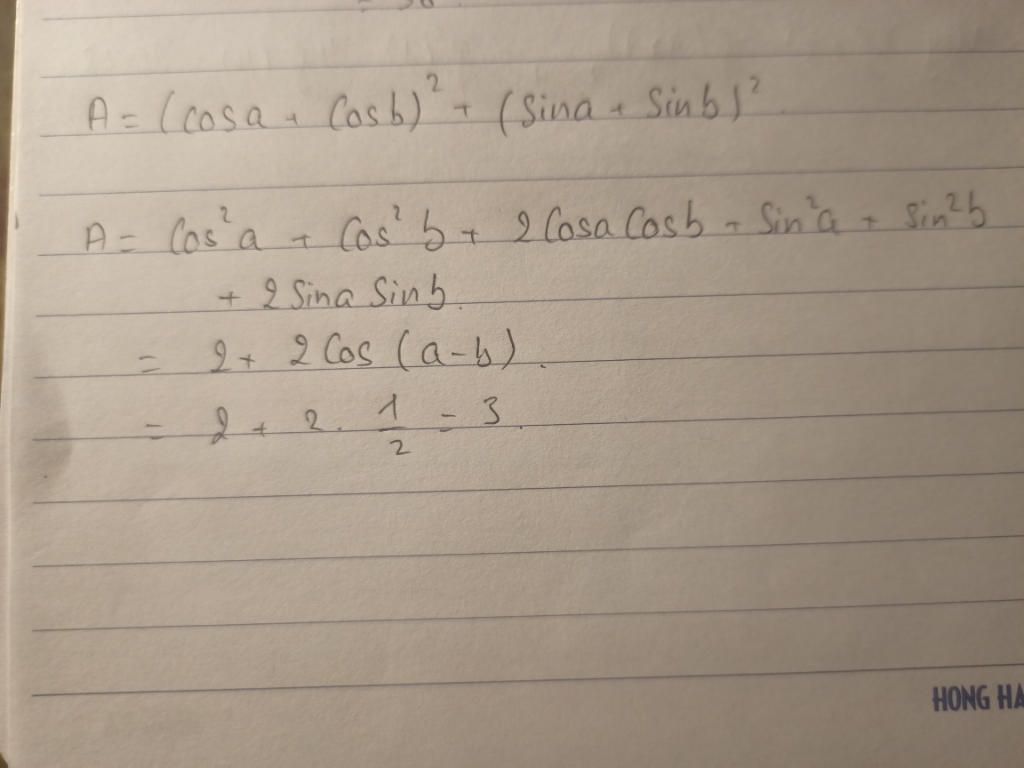 = 36
A = (cosa + Cosb)² + (Sina + Sinb)².
A = Cos²a + Cos²b + 2CosaCosb + Sin²a + Sin²b
+ 2 Sina Sinb.
= 2 + 2Cos (a-b).
= 2 + 2. 1/2 = 3.
HONG HA